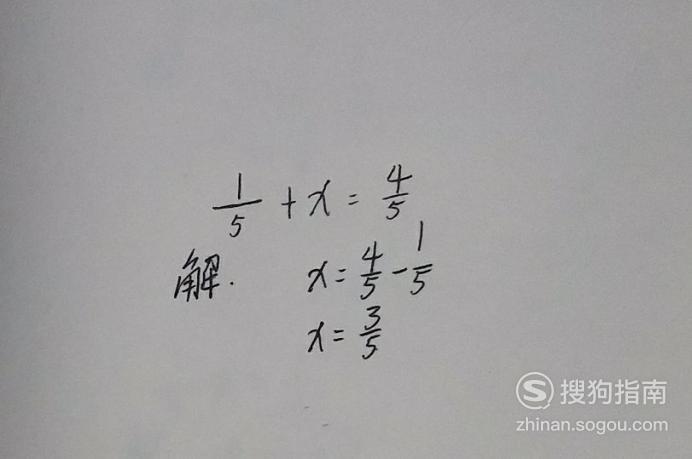 1/5 + x = 4/5
解. x = 4/5 - 1/5
x = 3/5
搜狗指南
zhinan.sogou.com